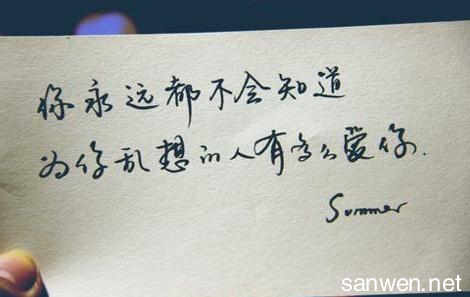 你永远都不会知道
为你乱想的人有多么爱你.
Summer
sanwen.net